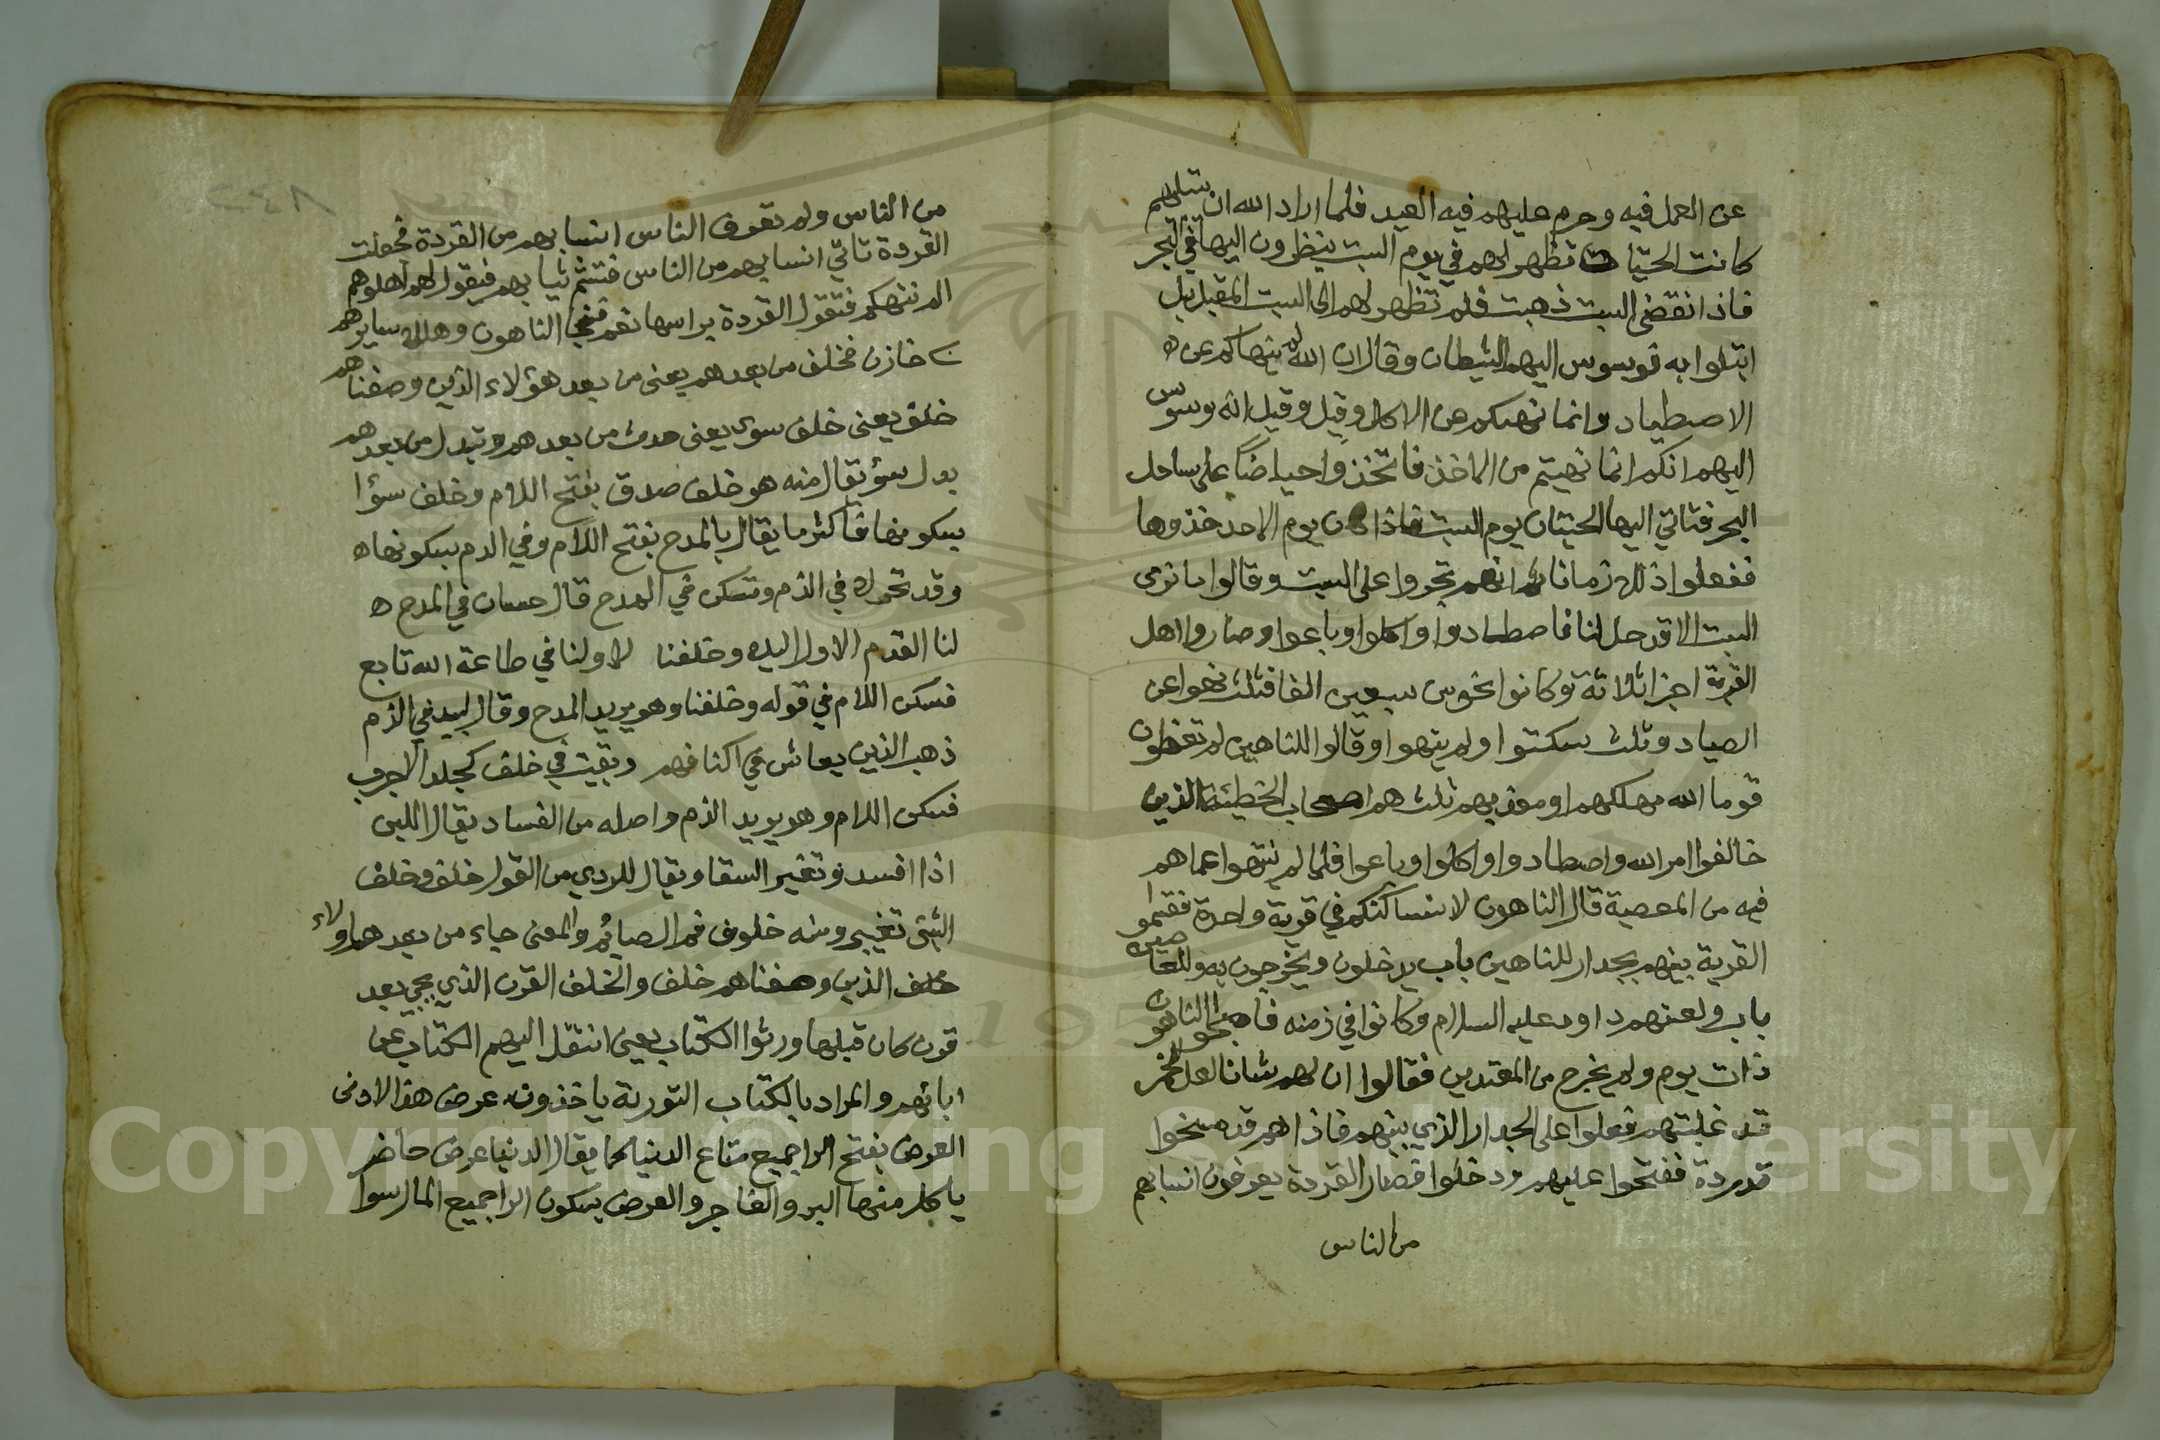 عن العمل فيه وحرم عليهم فيه الصيد فلما اراد الله ان يبتليهم
كانت الحيتان تظهر لهم في يوم السبت ينظرون اليها في البحر
فاذا نقضى السبت ذهبت فلم تظهر لهم الى السبت المقبل بل
ابتلوا به فوسوس اليهم الشيطان وقال ان الله لم ينهاكم عن ه
الاصطياد وانما نهيكم عن الاكل وقيل وقيل انه وسوس
اليهم انكم انما نهيتم من الاخذ فاتخذوا حياضاً على ساحل
البحر فتاتي اليها الحيتان يوم السبت فاذا كان يوم الاحد خذوها
ففعلوا ذلك زمانا ثم انهم تجروا على السبت وقالوا ما نرى
السبت الا قد حل لنا فاصطادوا واكلوا وباعوا وصاروا اهل
القرية اجزا ثلاثة وكانوا نحوس سبعين الفا فثلث نهوا عن
الصياد وثلث سكتوا ولم ينهوا وقالوا للناهين لم تعظون
قوما الله مهلكهم او معذبهم ثلث هم اصحاب الخطيئة الذين
خالفوا امر الله واصطادوا واكلوا وباعوا فلما لم ينتهوا عما هم
فيه من المعصية قال الناهون لا نساكنكم في قرية واحدة فقسموا
القرية بينهم بجدار للناهين باب يدخلون ويخرجون به وللعاصين
باب ولعنهم داود عليه السلام وكانوا في زمنه فاصبحوا الناهون
ذات يوم ولم يخرج من المعتدين فقالوا ان لهم شانا لعل الخمر
قد غلبتهم فعلوا على الجدار الذي بينهم فاذا هم قد مسخوا
قردة ففتحوا عليهم ودخلوا فصار القردة يعرفون انسابهم
من الناس
من الناس ولم تعرف الناس انسابهم من القردة فجعلت
القردة تاتي انسابهم من الناس فتشم ثيابهم فيقول لهم اهلوهم
الم ننهكم فتقول القردة براسها نعم فنجا الناهون وهلك سايرهم
خازن فخلف من بعدهم يعنى من بعد هؤلاء الذين وصفناهم
خلف يعنى خلف سوى يعنى حدث من بعدهم وتبدل من بعدهم
بدل سوء يقال منه هو خلف صدق بفتح اللام وخلف سؤا
بسكونها فاكثر ما يقال بالمدح بفتح اللام وفي الذم بسكونها ه
وقد تحرك في الذم وتسكن في المدح قال حسان في المدح ه
لنا القدم الاولا اليك وخلفنا لاولنا في طاعة الله تابع
فسكن اللام في قوله وخلفنا وهو يريد المدح وقال لبيد في الذم
ذهب الذين يعاش في اكنافهم وبقيت في خلف كجلد الاجرب
فسكن اللام وهو يريد الذم واصله من الفساد يقال اللبن
اذا افسد وتغير السقا ويقال للردي من القول خلف وخلف
الشى تغيير ومنه خلوف فم الصائم والمعنى جاء من بعد هاولاء
خلف الذين وصفناهم خلف والخلف القرن الذي يجي بعد
قرن كان قبلها ورثوا الكتاب يعنى انتقل اليهم الكتاب عن
ابائهم والمراد بالكتاب التورية ياخذون عرض هذا الادنى
العرض بفتح الرا جميع متاع الدنيا كما يقال الدنيا عرض حاضر
ياكل منها البر والفاجر والعرض بسكون الرا جميع المال سوا
Copyright © King Saud University